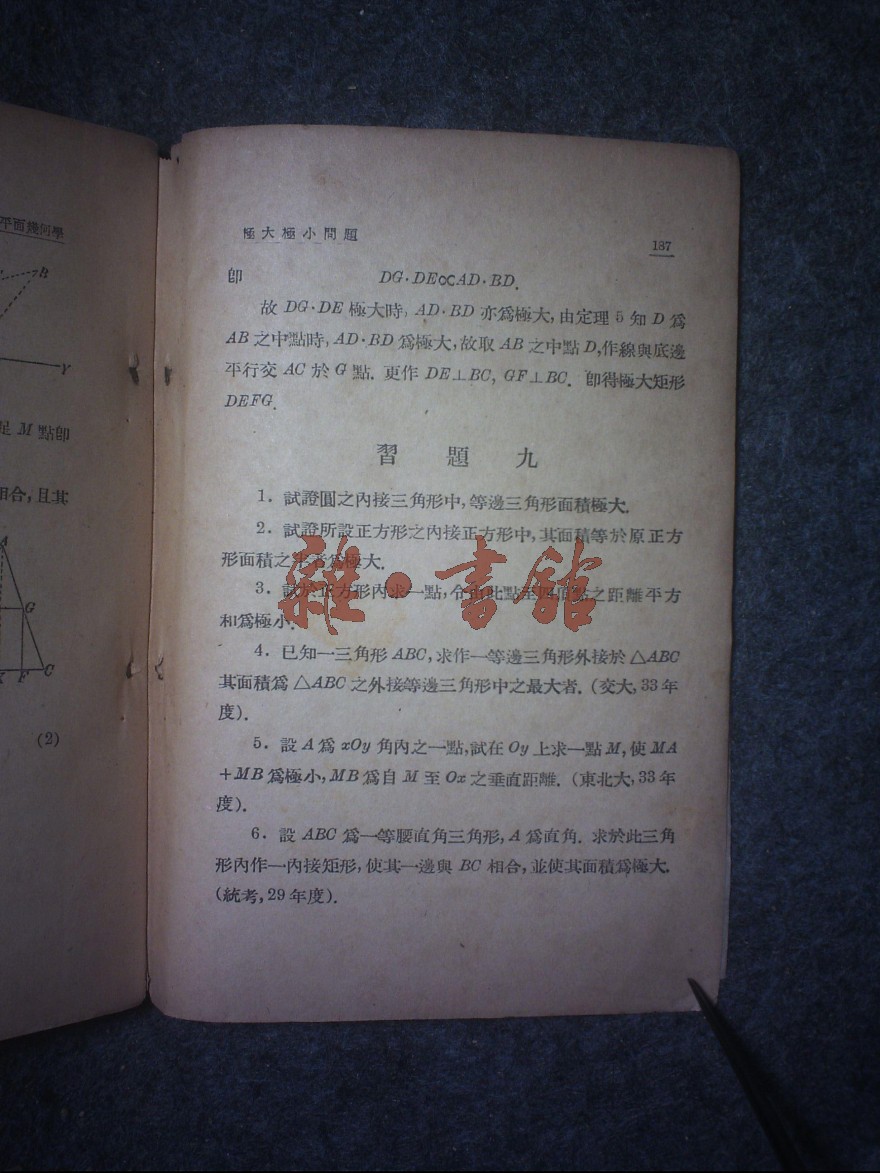 平面幾何學
B
Y
M 點卽
相合,且其
A
G
F C
(2)
極大極小問題
187
卽 DG·DE∝AD·BD.
故 DG·DE 極大時, AD·BD 亦爲極大,由定理 5 知 D 爲
AB 之中點時, AD·BD 爲極大,故取 AB 之中點 D,作線與底邊
平行交 AC 於 G 點. 更作 DE⊥BC, GF⊥BC. 卽得極大矩形
DEFG.
習題九
1. 試證圓之內接三角形中,等邊三角形面積極大.
2. 試證所設正方形之內接正方形中,其面積等於原正方
形面積之半者爲極大.
3. 試於正方形內求一點,令由此點至四頂點之距離平方
和爲極小.
4. 已知一三角形 ABC,求作一等邊三角形外接於 △ABC
其面積爲 △ABC 之外接等邊三角形中之最大者. (交大, 33 年
度).
5. 設 A 爲 xOy 角內之一點,試在 Oy 上求一點 M,使 MA
+MB 爲極小, MB 爲自 M 至 Ox 之垂直距離. (東北大, 33 年
度).
6. 設 ABC 爲一等腰直角三角形, A 爲直角. 求於此三角
形內作一內接矩形,使其一邊與 BC 相合,並使其面積爲極大.
(統考, 29 年度).
雜·書館